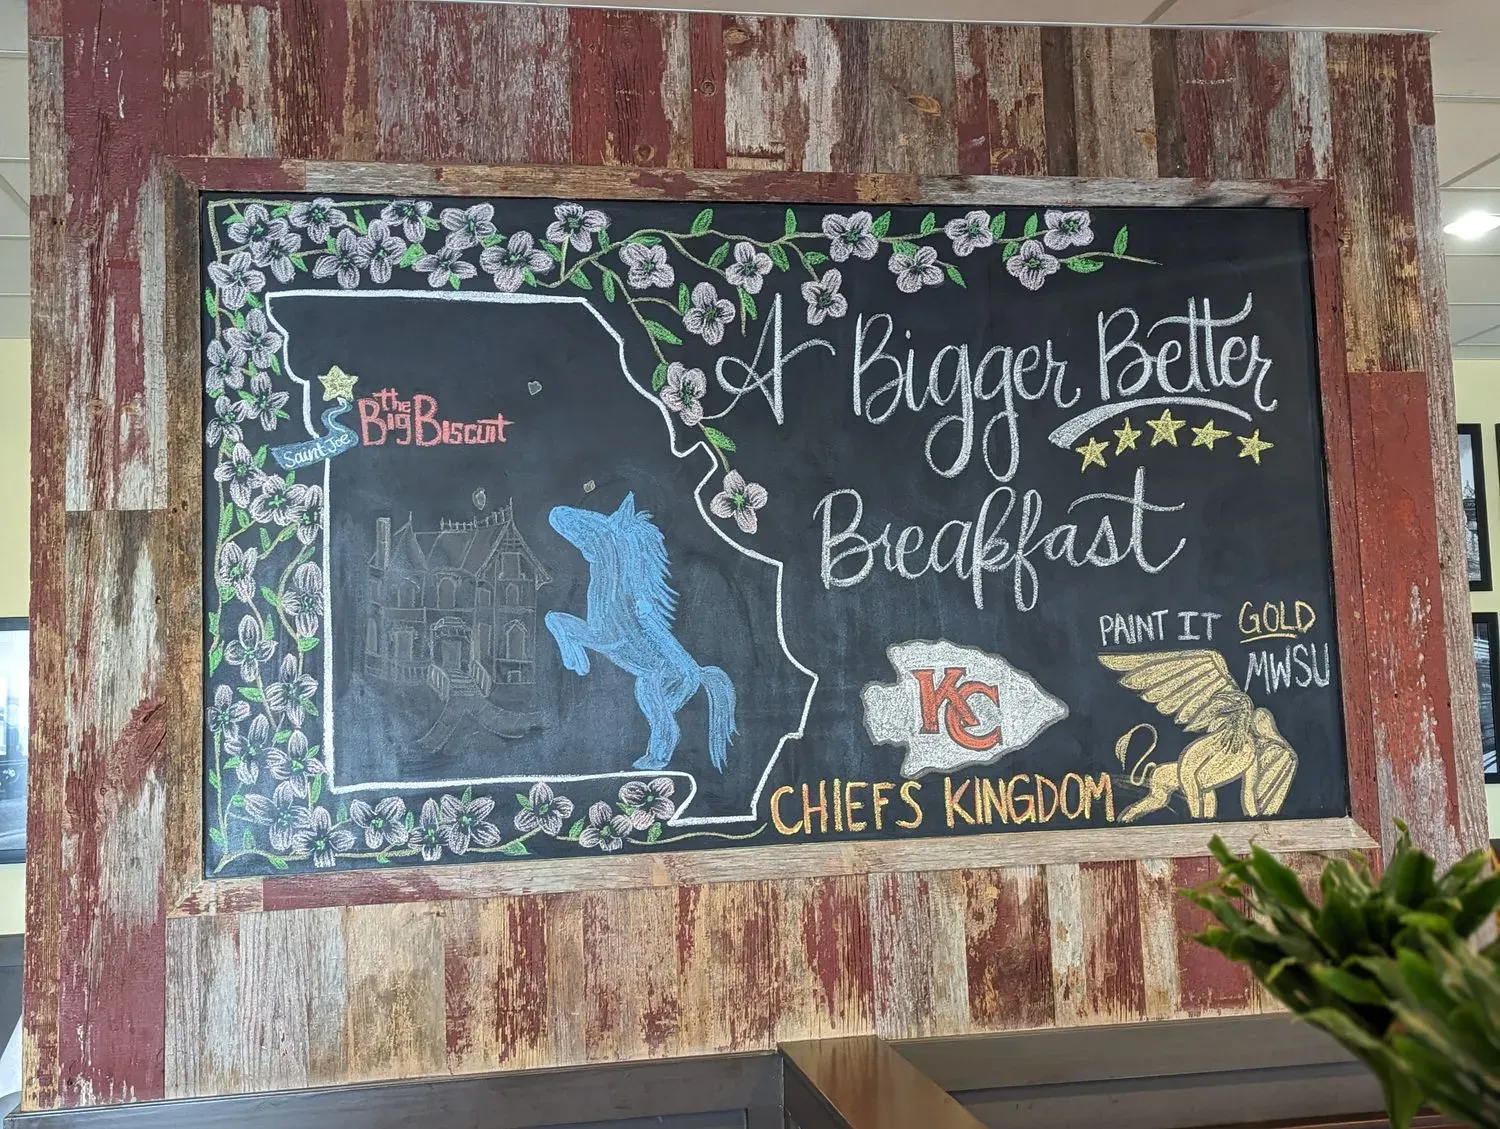 the
Big Biscuit
Saint Joe
A Bigger Better
Breakfast
KC
CHIEFS KINGDOM
PAINT IT GOLD
MWSU